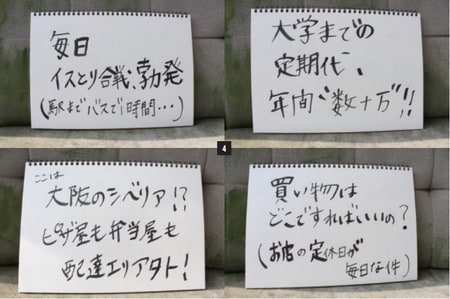 毎日
イスとり合戦、勃発
(駅までバスで1時間…)
大学までの
定期代、
年間“数十万”!!
4
ここは
大阪のシベリア!?
ピザ屋も弁当屋も
配達エリア外!
買い物は
どこですればいいの?
(お店の定休日が
毎日な件)